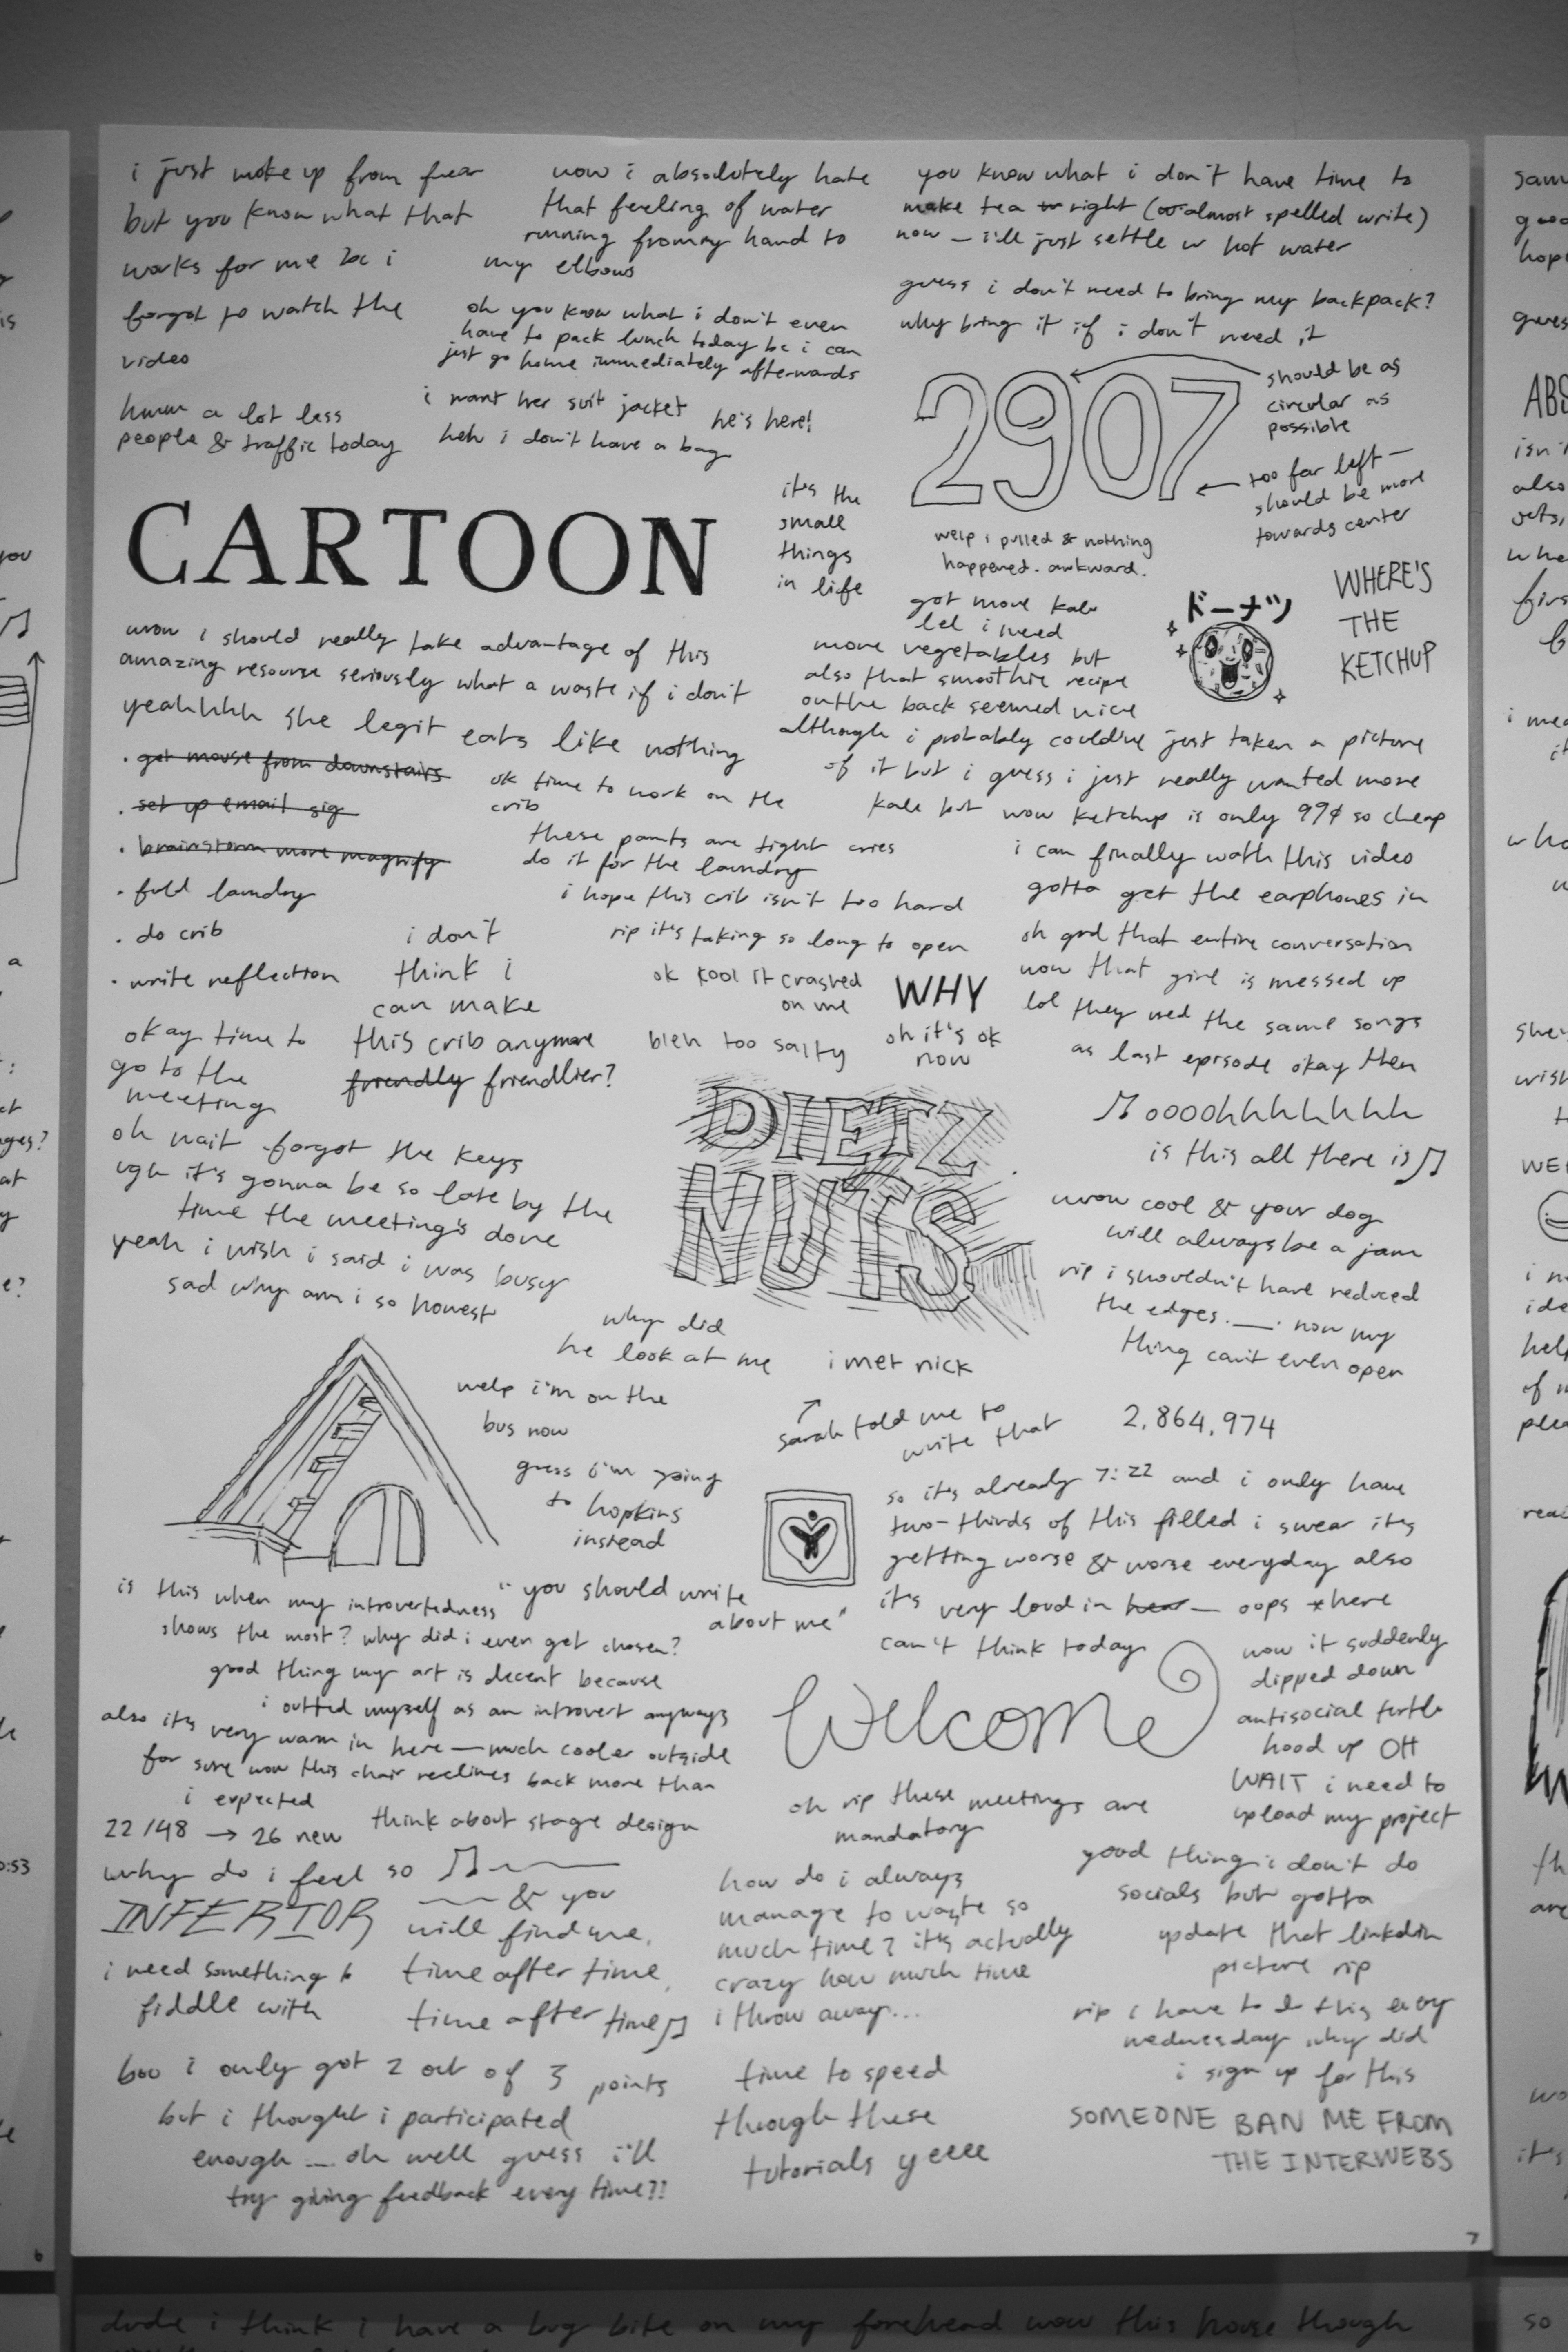 i just woke up from fear
but you know what that
works for me bc i
forgot to watch the
video
hmm a lot less
people & traffic today
wow i absolutely hate
that feeling of water
running from my hand to
my elbows
oh you know what i don't even
have to pack lunch today bc i can
just go home immediately afterwards
i want her suit jacket
he's here!
heh i don't have a bag
you know what i don't have time to
make tea right (almost spelled write)
now — i'll just settle w hot water
guess i don't need to bring my backpack?
why bring it if i don't need it
2907
should be as
circular as
possible
too far left —
should be more
towards center
CARTOON
it's the
small
things
in life
welp i pulled & nothing
happened. awkward.
ドーナツ
WHERE'S
THE
KETCHUP
got more kale
lol i need
more vegetables but
also that smoothie recipe
on the back seemed nice
although i probably could've just taken a picture
of it but i guess i just really wanted more
kale but wow ketchup is only 99¢ so cheap
wow i should really take advantage of this
amazing resource seriously what a waste if i don't
yeahhhh she legit eats like nothing
· get mouse from downstairs
· set up email sig
· brainstorm more magnify
· fold laundry
· do crib
· write reflection
ok time to work on the
crib
these pants are tight cries
do it for the laundry
i hope this crib isn't too hard
rip it's taking so long to open
ok kool it crashed
on me
WHY
bleh too salty
oh it's ok
now
i don't
think i
can make
this crib anymore
friendly friendlier?
i can finally watch this video
gotta get the earphones in
oh god that entire conversation
wow that girl is messed up
lol they used the same songs
as last episode okay then
♫ oooohhhhhhhh
is this all there is ♫
okay time to
go to the
meeting
oh wait forgot the keys
ugh it's gonna be so late by the
time the meeting's done
yeah i wish i said i was busy
sad why am i so honest
DIETZ
NUTS
wow cool & your dog
will always be a jam
rip i shouldn't have reduced
the edges .__. now my
thing can't even open
why did
he look at me
i met nick
sarah told me to
write that
2,864,974
welp i'm on the
bus now
guess i'm going
to hopkins
instead
so it's already 7:22 and i only have
two-thirds of this filled i swear it's
getting worse & worse everyday also
it's very loud in hear — oops *here
can't think today
"you should write
about me"
is this when my introvertedness
shows the most? why did i even get chosen?
good thing my art is decent because
i outted myself as an introvert anyways
also it's very warm in here — much cooler outside
for sure wow this chair reclines back more than
i expected
Welcome
wow it suddenly
dipped down
antisocial turtle
hood up OH
WAIT i need to
upload my project
oh rip these meetings are
mandatory
22/48 → 26 new
think about stage design
why do i feel so
INFERIOR
♫ ~~~
~~ & you
will find me,
time after time,
time after time ♫
i need something to
fiddle with
how do i always
manage to waste so
much time? it's actually
crazy how much time
i throw away...
good thing i don't do
socials but gotta
update that linkedin
picture rip
rip i have to do this every
wednesday why did
i sign up for this
boo i only got 2 out of 3 points
but i thought i participated
enough ... oh well guess i'll
try giving feedback every time??
time to speed
through these
tutorials yeee
SOMEONE BAN ME FROM
THE INTERWEBS
7
6
dude i think i have a bug bite on my forehead wow this house though